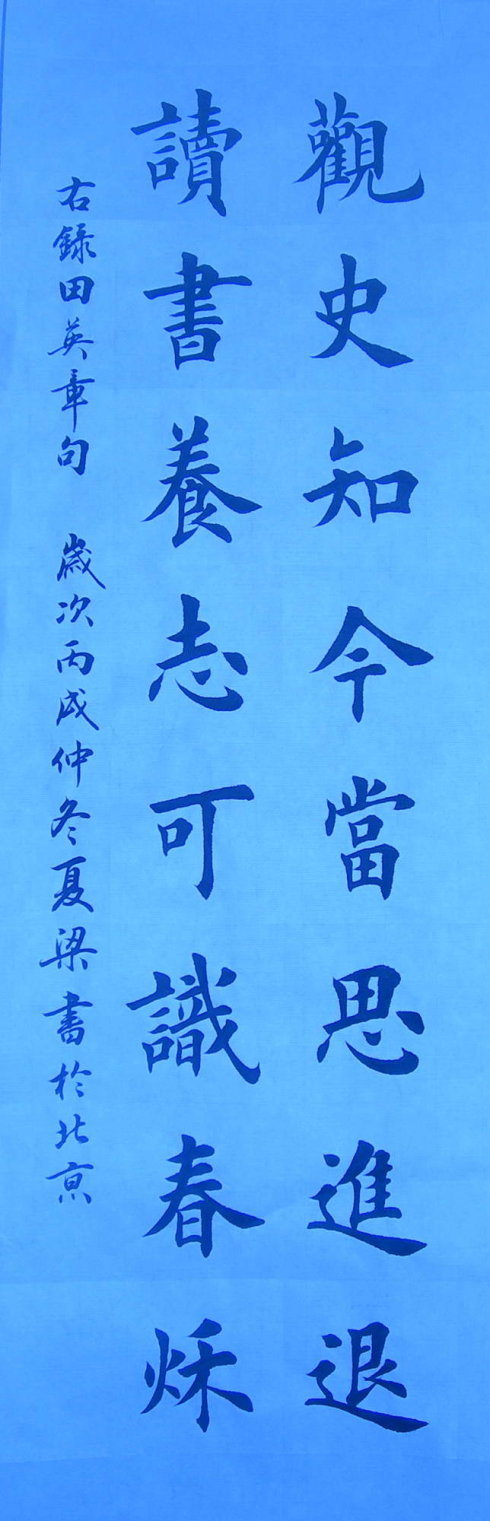 觀史知今當思進退
讀書養志可識春烁
右録田英章句 歲次丙戌仲冬夏梁書於北京